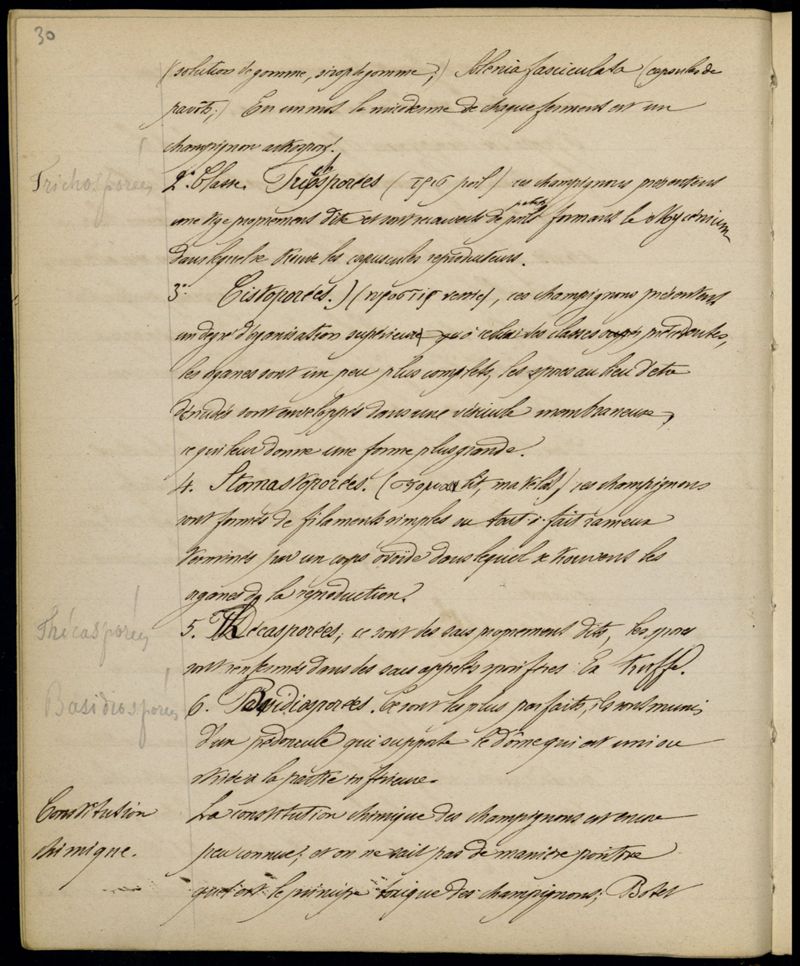 30
(solution de gomme, sirop de gomme,) Sclénia fasciculata (capsules de
pavots;) En un mot le micoderme de chaque ferment est un
champignon arthrosporé.
Trichosporées
2° Classe. Trichosporées (τριξ poil) ces champignons présentent
une tige proprement dite et sont recouverts de petits poils formant le Mycénium
dans lequel se trouve les capuscules reproducteurs.
3° Cistoporées.) ( vessie), ces champignons présentent
un degré d'organisation supérieure à celui des classes précédentes,
les organes sont un peu plus complets, les spores au lieu d'être
dénudés sont enveloppés dans une vésicule membraneuse,
ce qui leur donne une forme plus grande.
4. Stomasteporées. ( lit, matelas) ces champignons
sont formés de filaments simples ou tout-à-fait rameux
terminés par un corps ovoïde dans lequel se trouvent les
organes de la reproduction.
Thécasporées
5. Thécasporées; ce sont des sacs proprement dits, les spores
sont renfermés dans des sacs appelés sporifères. Ex Truffe.
Basidiosporées
6. Basidiosporées. Ce sont les plus parfaits, ils sont munis
d'un pédoncule qui supporte le dôme qui est uni ou
strié à la partie inférieure.
Constitution
chimique.
La constitution chimique des champignons est encore
peu connue; et on ne sait pas de manière positive
quel est le principe toxique des champignons; Botet